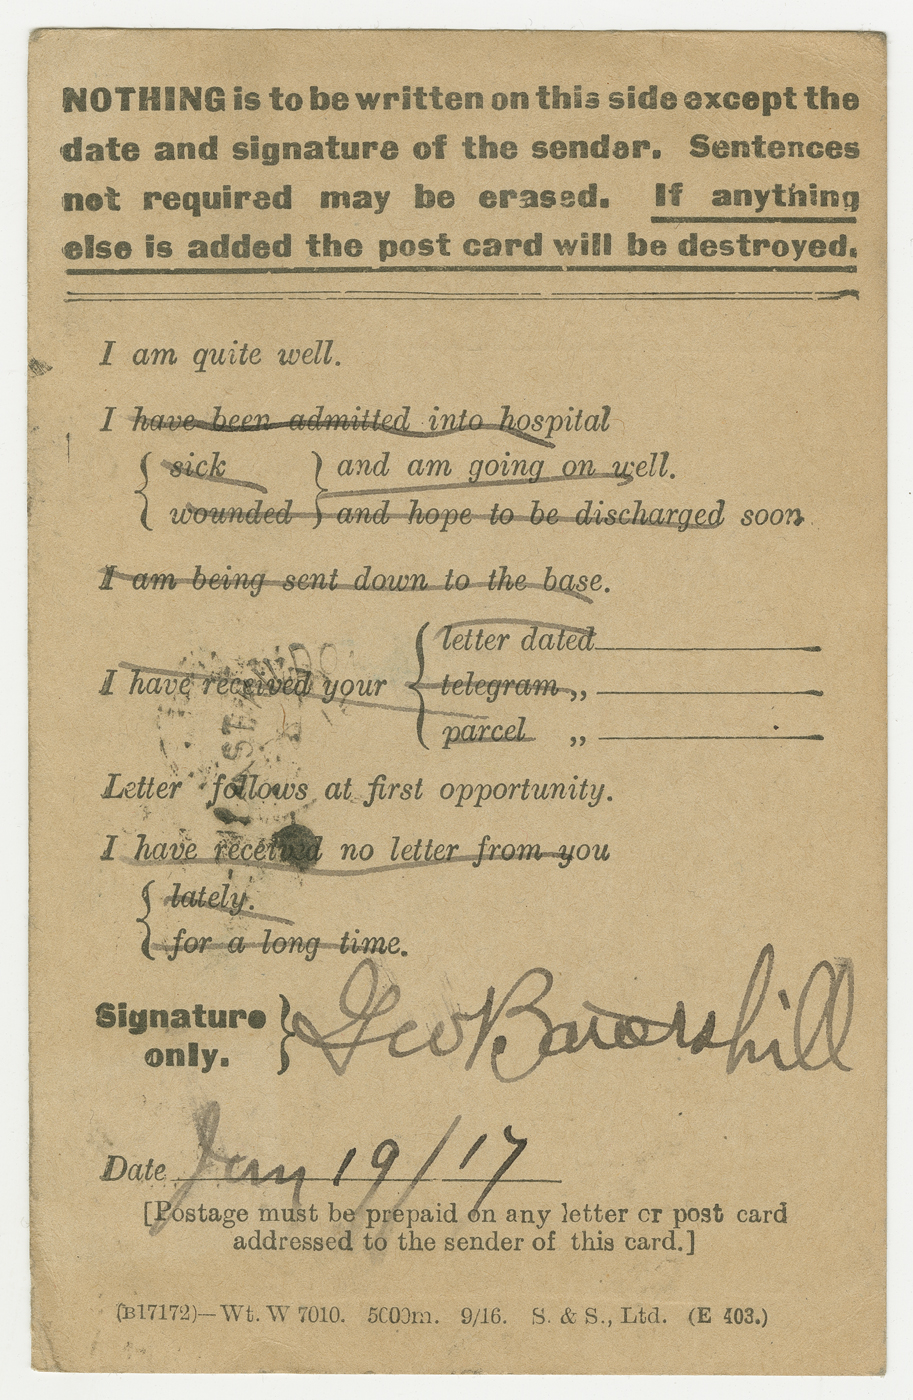 NOTHING is to be written on this side except the
date and signature of the sender. Sentences
not required may be erased. If anything
else is added the post card will be destroyed.
I am quite well.
I have been admitted into hospital
{ sick } and am going on well.
{ wounded } and hope to be discharged soon
I am being sent down to the base.
I have received your { letter dated
telegram „
parcel „
Letter follows at first opportunity.
I have received no letter from you
{ lately.
{ for a long time.
Signature only. } Geo
Date Jany 19/17
[Postage must be prepaid on any letter or post card
addressed to the sender of this card.]
(B17172)—Wt. W 7010. 5000m. 9/16. S. & S., Ltd. (E 403.)